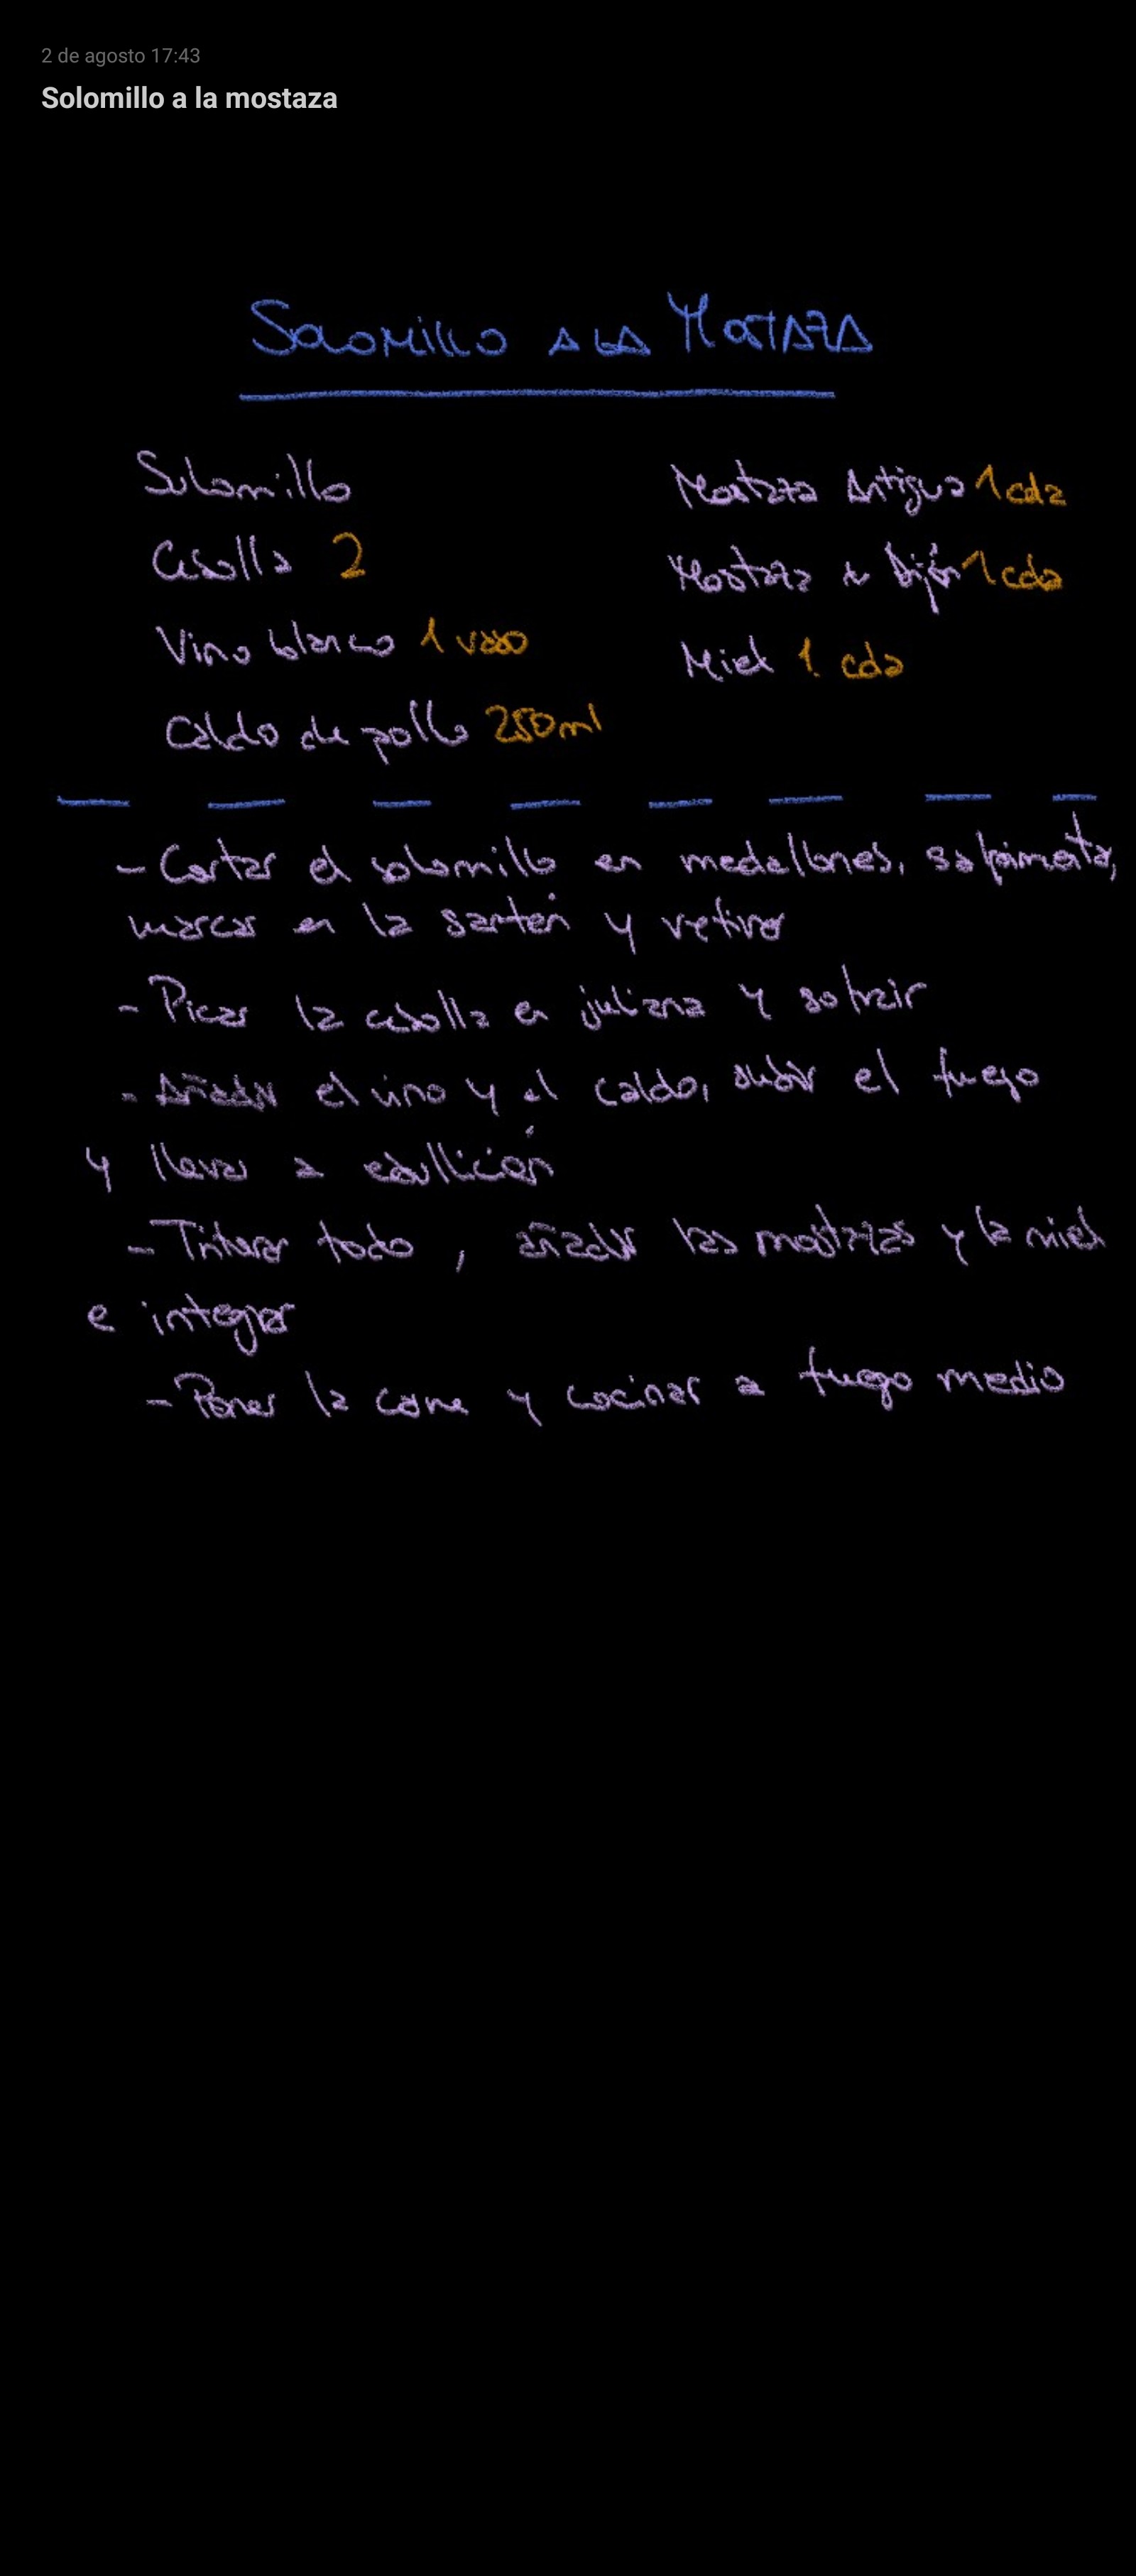 2 de agosto 17:43
Solomillo a la mostaza
SOLOMILLO A LA MOSTAZA
Solomillo
Cebolla 2
Vino blanco 1 vaso
Caldo de pollo 250ml
Mostaza Antigua 1 cda
Mostaza de Dijón 1 cda
Miel 1 cda
- Cortar el solomillo en medallones, salpimentar,
marcar en la sartén y retirar
- Picar la cebolla en juliana y sofreir
- Añadir el vino y el caldo, subir el fuego
y llevar a ebullición
- Triturar todo, añadir las mostazas y la miel
e integrar
- Poner la carne y cocinar a fuego medio